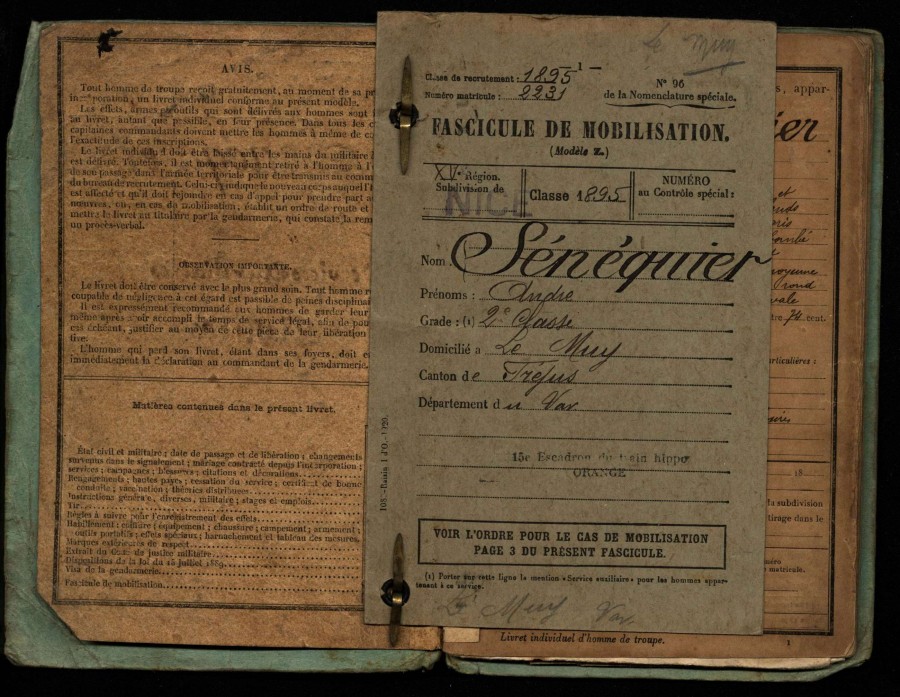 AVIS.
Tout homme de troupe reçoit gratuitement, au moment de sa
incorporation, un livret individuel conforme au présent modèle.
Les effets, armes outils qui sont délivrés aux hommes sont
au livret, autant que possible, en leur présence. Dans tous les
capitaines commandants doivent mettre les hommes à même de
l'exactitude de ces inscriptions.
Le livret individuel doit être laissé entre les mains du militaire
est délivré. Toutefois, il est momentanément retiré à l'homme à
de son passage dans l'armée territoriale pour être transmis au
du bureau de recrutement. Celui-ci indique le nouveau corps auquel
est affecté et qu'il doit rejoindre en cas d'appel pour prendre part
nouveau, ou, en cas de mobilisation; établit un ordre de route et
mettre le livret au titulaire par la gendarmerie, qui constate la
un procès-verbal.
OBSERVATION IMPORTANTE.
Le livret doit être conservé avec le plus grand soin. Tout homme
coupable de négligence à cet égard est passible de peines
Il est expressément recommandé aux hommes de garder leur
même après avoir accompli le temps de service légal, afin de
cas échéant, justifier au moyen de cette pièce de leur libération
tive.
L'homme qui perd son livret, étant dans ses foyers, doit
immédiatement la déclaration au commandant de la gendarmerie.
Matières contenues dans le présent livret.
État civil et militaire; date de passage et de libération; changements
survenus dans le signalement; mariage contracté depuis l'incorporation;
services; campagnes; blessures; citations et décorations
Rengagements; hautes payes; cessation du service; certificat de bonne
conduite; vaccination; théories distribuées
Instructions générale, diverses, militaire; stages et emplois
Tir
Règles à suivre pour l'enregistrement des effets
Habillement; coiffure; équipement; chaussure; campement; armement;
outils portatifs; effets spéciaux; harnachement et tableau des mesures
Marques extérieures de respect
Extrait du Code de justice militaire
Dispositions de la loi du 15 juillet 1889
Visa de la gendarmerie
Fascicule de mobilisation
Le Muy
— 1 —
Classe de recrutement: 1895
Numéro matricule: 2231
N° 96
de la Nomenclature spéciale.
FASCICULE DE MOBILISATION.
(Modèle Z.)
XVe Région.
Subdivision de
NICE
Classe 1895
NUMÉRO
au Contrôle spécial:
Nom Sénéquier
Prénoms: André
Grade: (1) 2e Classe
Domicilié à Le Muy
Canton de Fréjus
Département du Var
15e Escadron du train hippo
ORANGE
VOIR L'ORDRE POUR LE CAS DE MOBILISATION
PAGE 3 DU PRÉSENT FASCICULE.
(1) Porter sur cette ligne la mention «Service auxiliaire» pour les hommes appar-
tenant à ce service.
Le Muy Var
s, appar-
ier
moyenne
rond
ovale
tre 74 cent.
articulières:
18
la subdivision
tirage dans le
matricule.
Livret individuel d'homme de troupe.
1